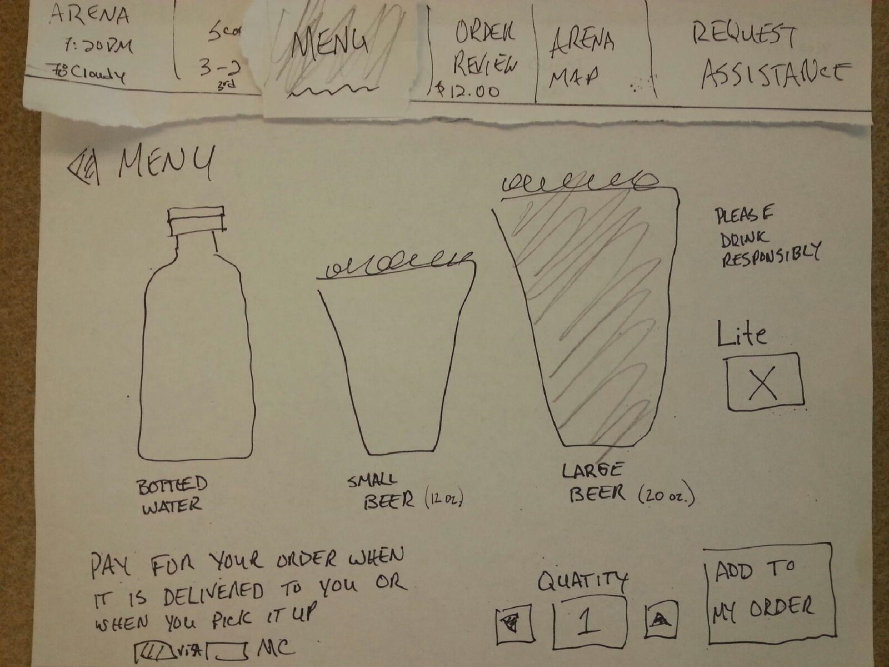 ARENA
7:20PM
Cloudy
3-2
3rd
MENU
ORDER
REVIEW
$12.00
ARENA
MAP
REQUEST
ASSISTANCE
MENU
PLEASE
DRINK
RESPONSIBLY
Lite
X
BOTTLED
WATER
SMALL
BEER (12oz.)
LARGE
BEER (20oz.)
PAY FOR YOUR ORDER WHEN
IT IS DELIVERED TO YOU OR
WHEN YOU PICK IT UP
VISA MC
QUATITY
1
ADD TO
MY ORDER